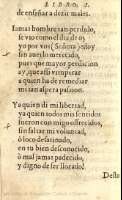 LIBRO. I.
de enseñar a dezir males.
Iamas hombre tan perdido,
se vio como el liado
yo por vos (señora) estoy
sin auerlo merecido,
pues que mayor perdicion
ay, que assi ver picar
a quien ha de remediar
mi tan aspera passion.
Ya quien di mi libertad,
ya quien todos mis sentidos
fueron con migo offrecidos,
sin faltar mi voluntad,
o loco desatinado,
en tu bien desconocido,
o mal jamas padecido,
y digno de ser llorado!